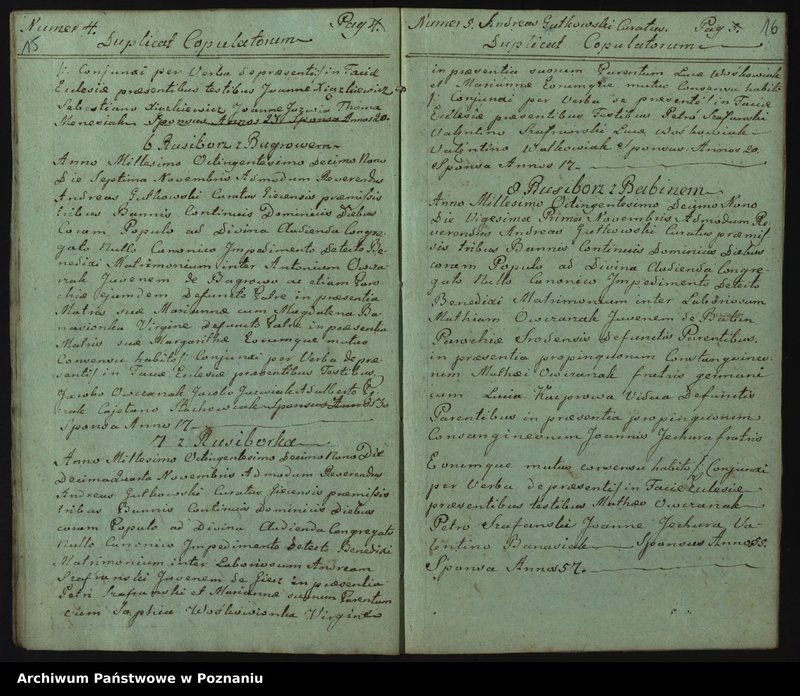 Numer 4. Pag 4.
15
Duplicat Copulatorum
/: Conjunxi per Verba de præsenti :/ in Facie
Ecclesiæ præsentibus testibus Joanne Kiazkiewicz et
Sebastiano Kiazkiewicz Joanne Jozwia Thoma
Menesiak Sponsus Annos 23. Sponsa Annos 20.
6 Rusibor z Bagrowem
Anno Millesimo Octingentesimo Decimo Nono
Die Septima Novembris Admodum Reverendus
Andreas Gutkowski Curatus Giecensis præmissis
tribus Bannis Continuis Dominicis Diebus
Coram Populo ad Divina Audienda Congre-
gato Nullo Canonico Impedimento Detecto Be-
nedixi Matrimonium inter Antonium Owcza
rzak Juvenem de Bagrowo ac etiam Paro
chiæ ejusdem Defuncto Patre in præsentia
Matris suæ Mariannæ cum Magdalena Ba-
nasionka Virgine defuncto Patre in præsentia
Matris suæ Margarithæ Eorumque mutuo
Consensu habito /: Conjunxi per Verba de præ-
senti :/ in Facie Ecclesiæ præsentibus Testibus
Jacobo Owczarzak Jacobo Juzwiak Adalberto
rak Cajetano Stachowiak Sponsus Annos 30
Sponsa Anno 17.
7 z Rusiborka
Anno Millesimo Octingentesimo Decimo Nono Die
Decima Quarta Novembris Admodum Reverendus
Andreas Gutkowski Curatus Giecensis præmissis
tribus Bannis Continuis Dominicis Diebus
coram Populo ad Divina Audienda Congregato
Nullo Canonico Impedimento Detecto Benedixi
Matrimonium inter Laboriosum Andream
Szafranski Juvenem de Giecz in præsentia
Petri Szafranski et Mariannæ suorum Parentum
cum Sophia Woskowionka Virgine
Numer 5. Andreas Gutkowski Curatus. Pag 5. 16
Duplicat Copulatorum
in præsentia suorum Parentum Lucæ Woskowiak
et Mariannæ Eorumque mutuo Consensu habito
/: Conjunxi per Verba de præsenti :/ in Facie
Ecclesiæ præsentibus Testibus Petro Szafranski
Valentino Szafranski Luca Woskowiak
Valentino Walkowiak Sponsus Annos 20.
Sponsa Annos 17.
8 Rusibor z Babinem
Anno Millesimo Octingentesimo Decimo Nono
Die Vigesima Prima Novembris Admodum Re
verendus Andreas Gutkowski Curatus præmis
sis tribus Bannis Continuis Dominicis Diebus
coram Populo ad Divina Audienda Congre-
gato Nullo Canonico Impedimento Detecto
Benedixi Matrimonium inter Laboriosum
Mathiam Owczarzak Juvenem de Babin
Parochiæ Srodensis defunctis Parentibus
in præsentia propinquorum Consanguineo-
rum Mathæi Owczarzak fratris germani
cum Lucia Kacprowa Vidua Defunctis
Parentibus in præsentia propinquorum
Consangineorum Joannis Jechura fratris
Eorumque mutuo consensu habito /: Conjunxi
per Verba de præsenti :/ in Facie Ecclesiæ
præsentibus testibus Matheo Owczarzak
Petro Szafranski Joanne Jechura Va-
lentino Banasiak Sponsus Annos 55.
Sponsa Annos 57.
Archiwum Państwowe w Poznaniu